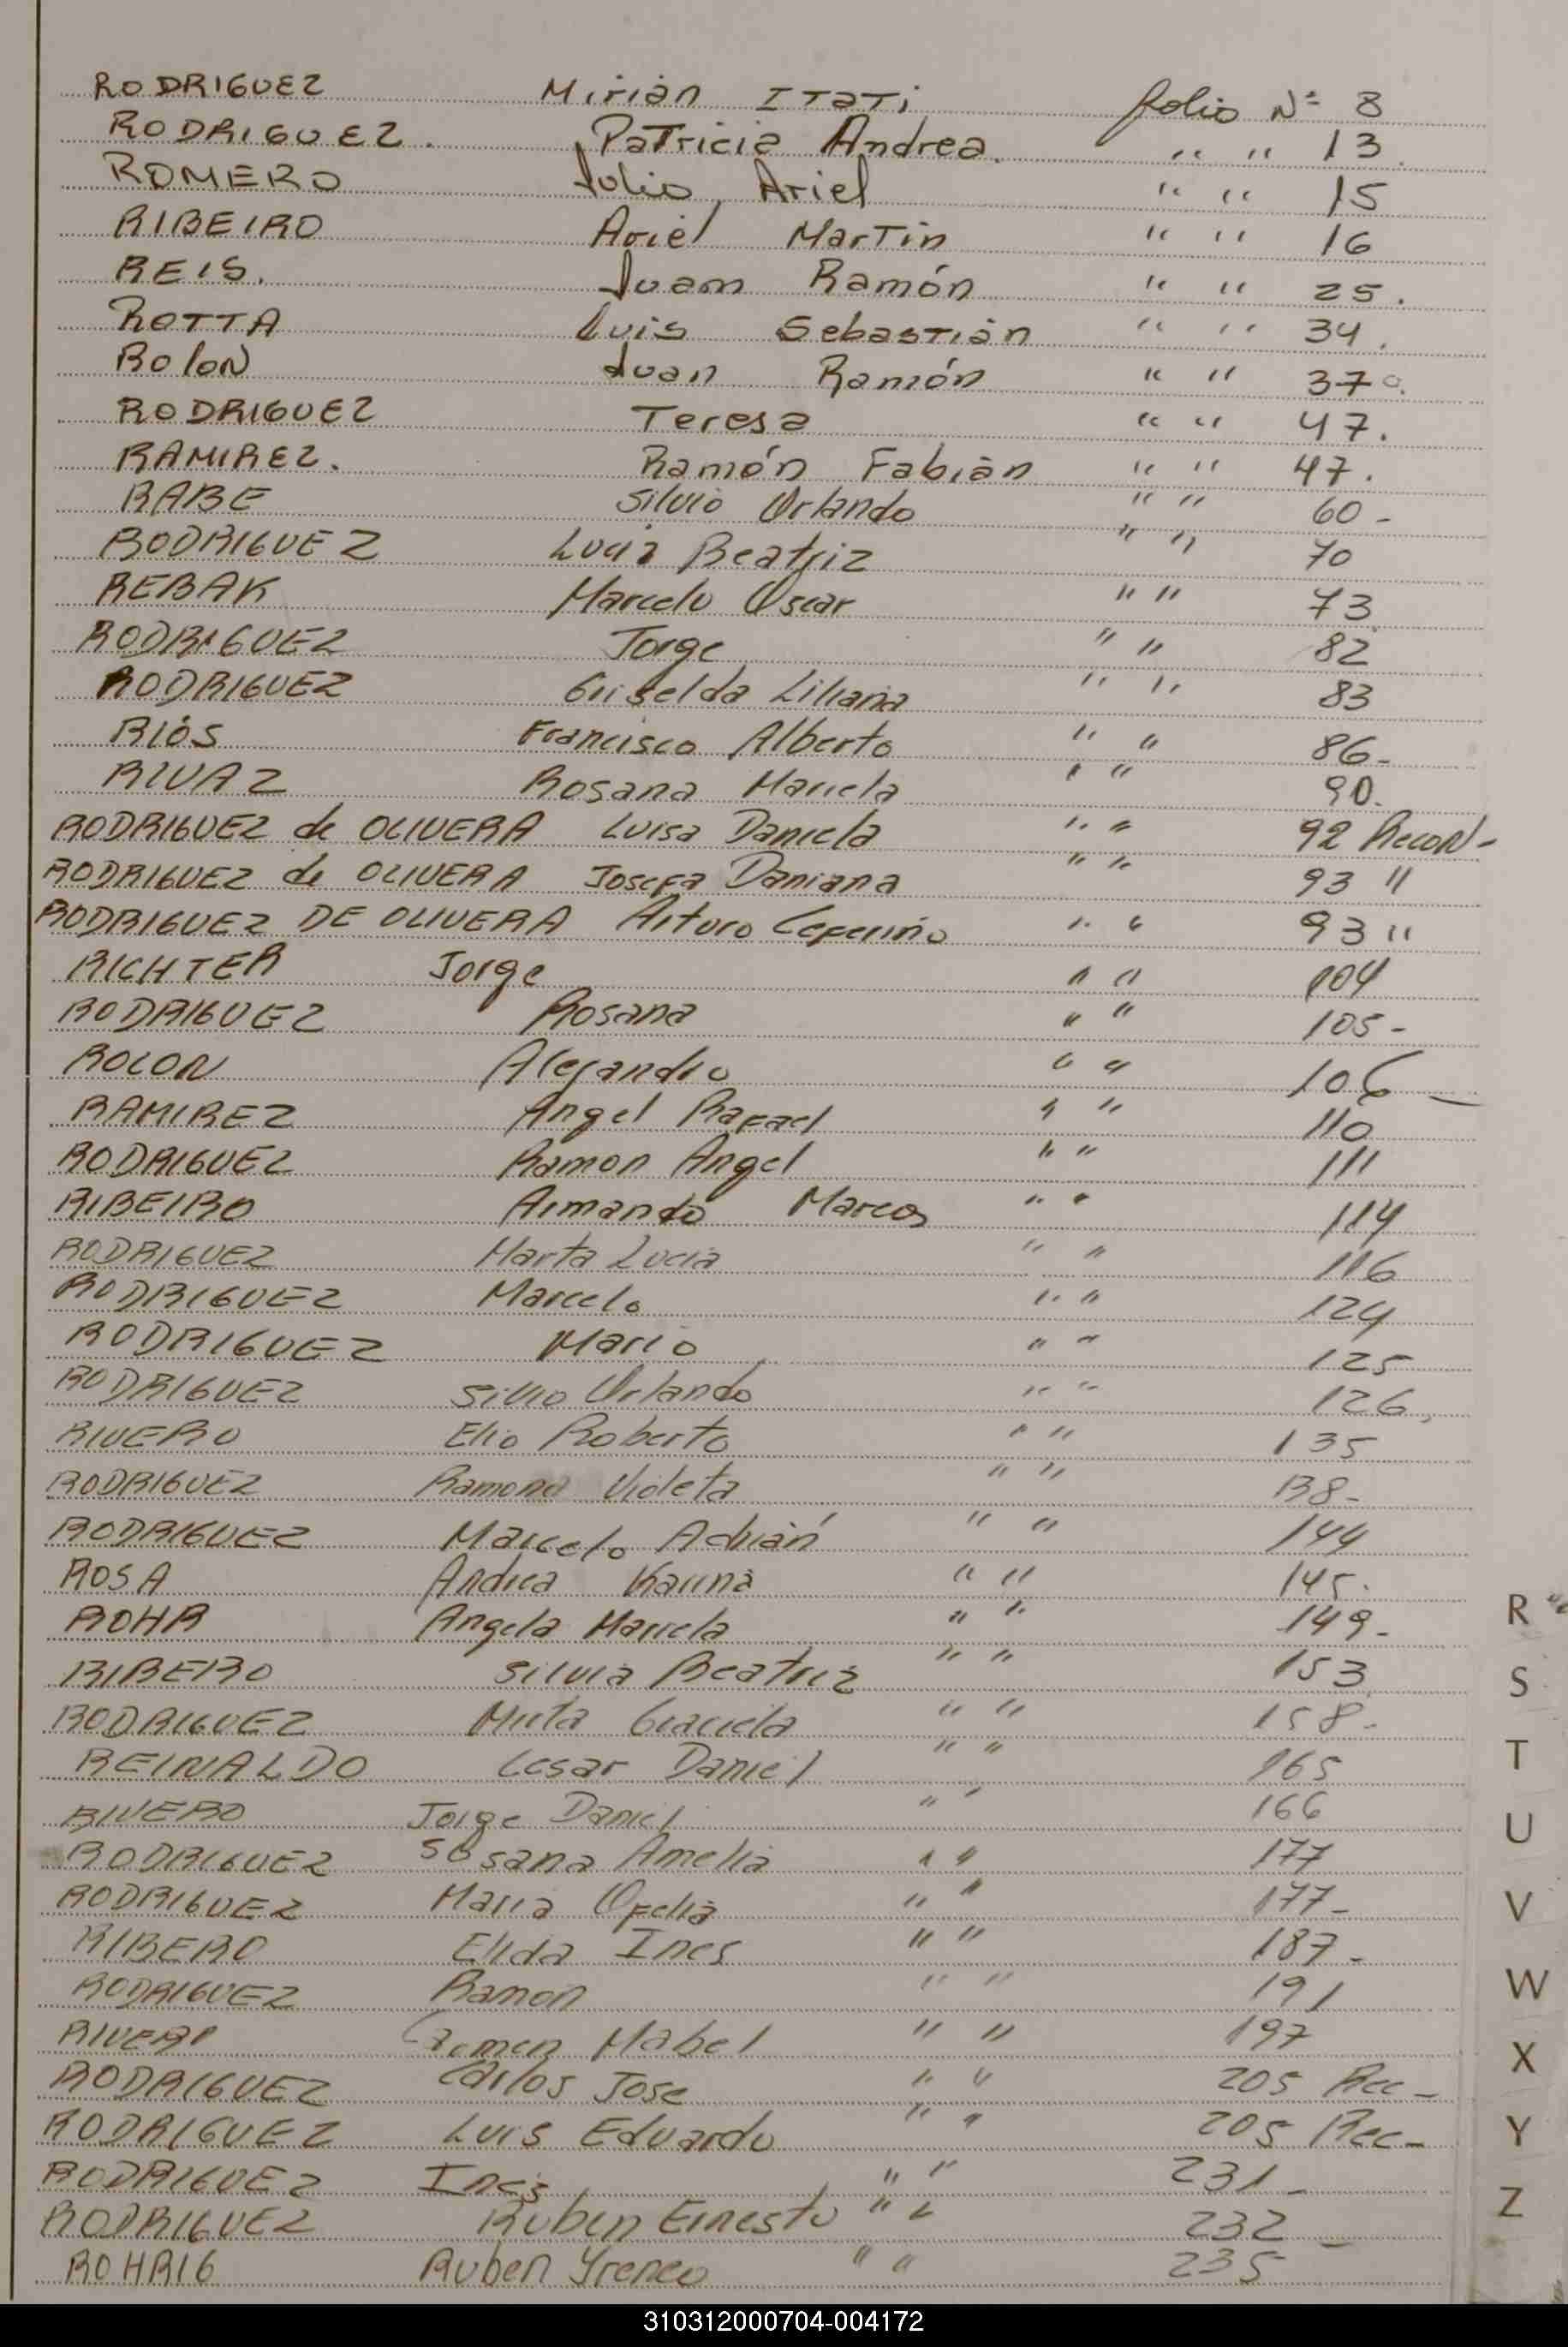 RODRIGUEZ Mirian ITaTi folio Nº 8
RODRIGUEZ. Patricia Andrea. " " 13.
ROMERO Julio Ariel " " 15
RIBEIRO Ariel Martin " " 16
REIS. Juam Ramón " " 25.
ROTTA Luis Sebastián " " 34.
ROLON Juan Ramón " " 37.
RODRIGUEZ Teresa " " 47.
RAMIREZ. Ramón Fabián " " 47.
RABE Silvio Orlando " " 60-
RODRIGUEZ Lucia Beatriz " " 70
REBAK Marcelo Oscar " " 73
RODRIGUEZ Jorge " " 82
RODRIGUEZ Griselda Liliana " " 83
RIOS Francisco Alberto " " 86-
RIVAZ Rosana Mariela " " 90.
RODRIGUEZ de OLIVERA Luisa Daniela " " 92 Recon-
RODRIGUEZ de OLIVERA Josefa Daniana " " 93 "
RODRIGUEZ DE OLIVERA Arturo Ceferino " " 93 "
RICHTER Jorge " " 104
RODRIGUEZ Rosana " " 105-
ROLON Alejandro " " 106-
RAMIREZ Angel Rafael " " 110
RODRIGUEZ Ramon Angel " " 111
RIBEIRO Armando Marcos " " 114
RODRIGUEZ Marta Lucia " " 116
RODRIGUEZ Marcelo " " 124
RODRIGUEZ Mario " " 125
RODRIGUEZ Silvio Orlando " " 126.
RIVERO Elio Roberto " " 135
RODRIGUEZ Ramona Violeta " " 138-
RODRIGUEZ Marcelo Adrián " " 144
ROSA Andrea Karina " " 145.
ROHR Angela Mariela " " 149-
RIBERO Silvia Beatriz " " 153
RODRIGUEZ Mirta Graciela " " 158-
REINALDO Cesar Daniel " " 165
RIVERO Jorge Daniel " " 166
RODRIGUEZ Susana Amelia " " 177
RODRIGUEZ Maria Ofelia " " 177-
RIBERO Elida Ines " " 187-
RODRIGUEZ Ramon " " 191
RIVERO Carmen Mabel " " 197
RODRIGUEZ Carlos Jose " " 205 Rec-
RODRIGUEZ Luis Eduardo " " 205 Rec-
RODRIGUEZ Ines " " 231-
RODRIGUEZ Ruben Ernesto " " 232-
ROHRIG Ruben Yreneo " " 235
R
S
T
U
V
W
X
Y
Z
310312000704-004172